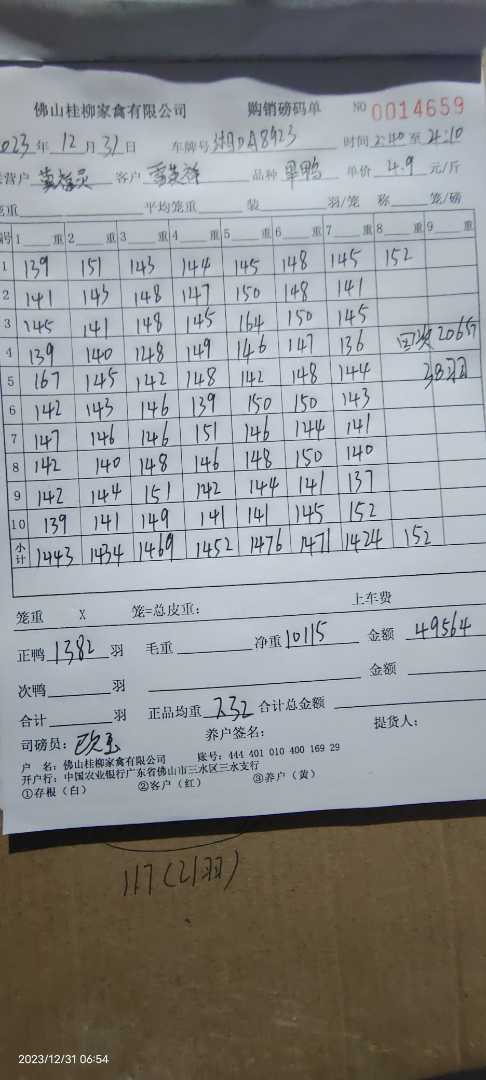 佛山桂柳家禽有限公司 购销磅码单 NO 0014659
023 年 12 月 31 日 车牌号 湘DA8923 时间 2:40 至 4:10
营户 客户 品种 单价 4.9 元/斤
笼重 平均笼重 装 羽/笼 称 笼/磅
编号 1 重 2 重 3 重 4 重 5 重 6 重 7 重 8 重 9 重
1 139 151 143 144 145 148 145 152
2 141 143 148 147 150 148 141
3 145 141 148 145 164 150 145
4 139 140 148 149 146 147 136 2065
5 167 145 142 148 142 148 144 38羽
6 142 143 146 139 150 150 143
7 147 146 146 151 146 144 141
8 142 140 148 146 148 150 140
9 142 144 151 142 144 141 137
10 139 141 149 141 141 145 152
小计 1443 1434 1469 1452 1476 1471 1424 152
笼重 X 笼=总皮重: 上车费
正鸭 1382 羽 毛重 净重 10115 金额 49564
次鸭 羽 金额
合计 羽 正品均重 7.32 合计总金额
司磅员: 养户签名: 提货人:
户 名: 佛山桂柳家禽有限公司 账号: 444 401 010 400 169 29
开户行: 中国农业银行广东省佛山市三水区三水支行
①存根(白) ②客户(红) ③养户(黄)
117(21羽)
2023/12/31 06:54